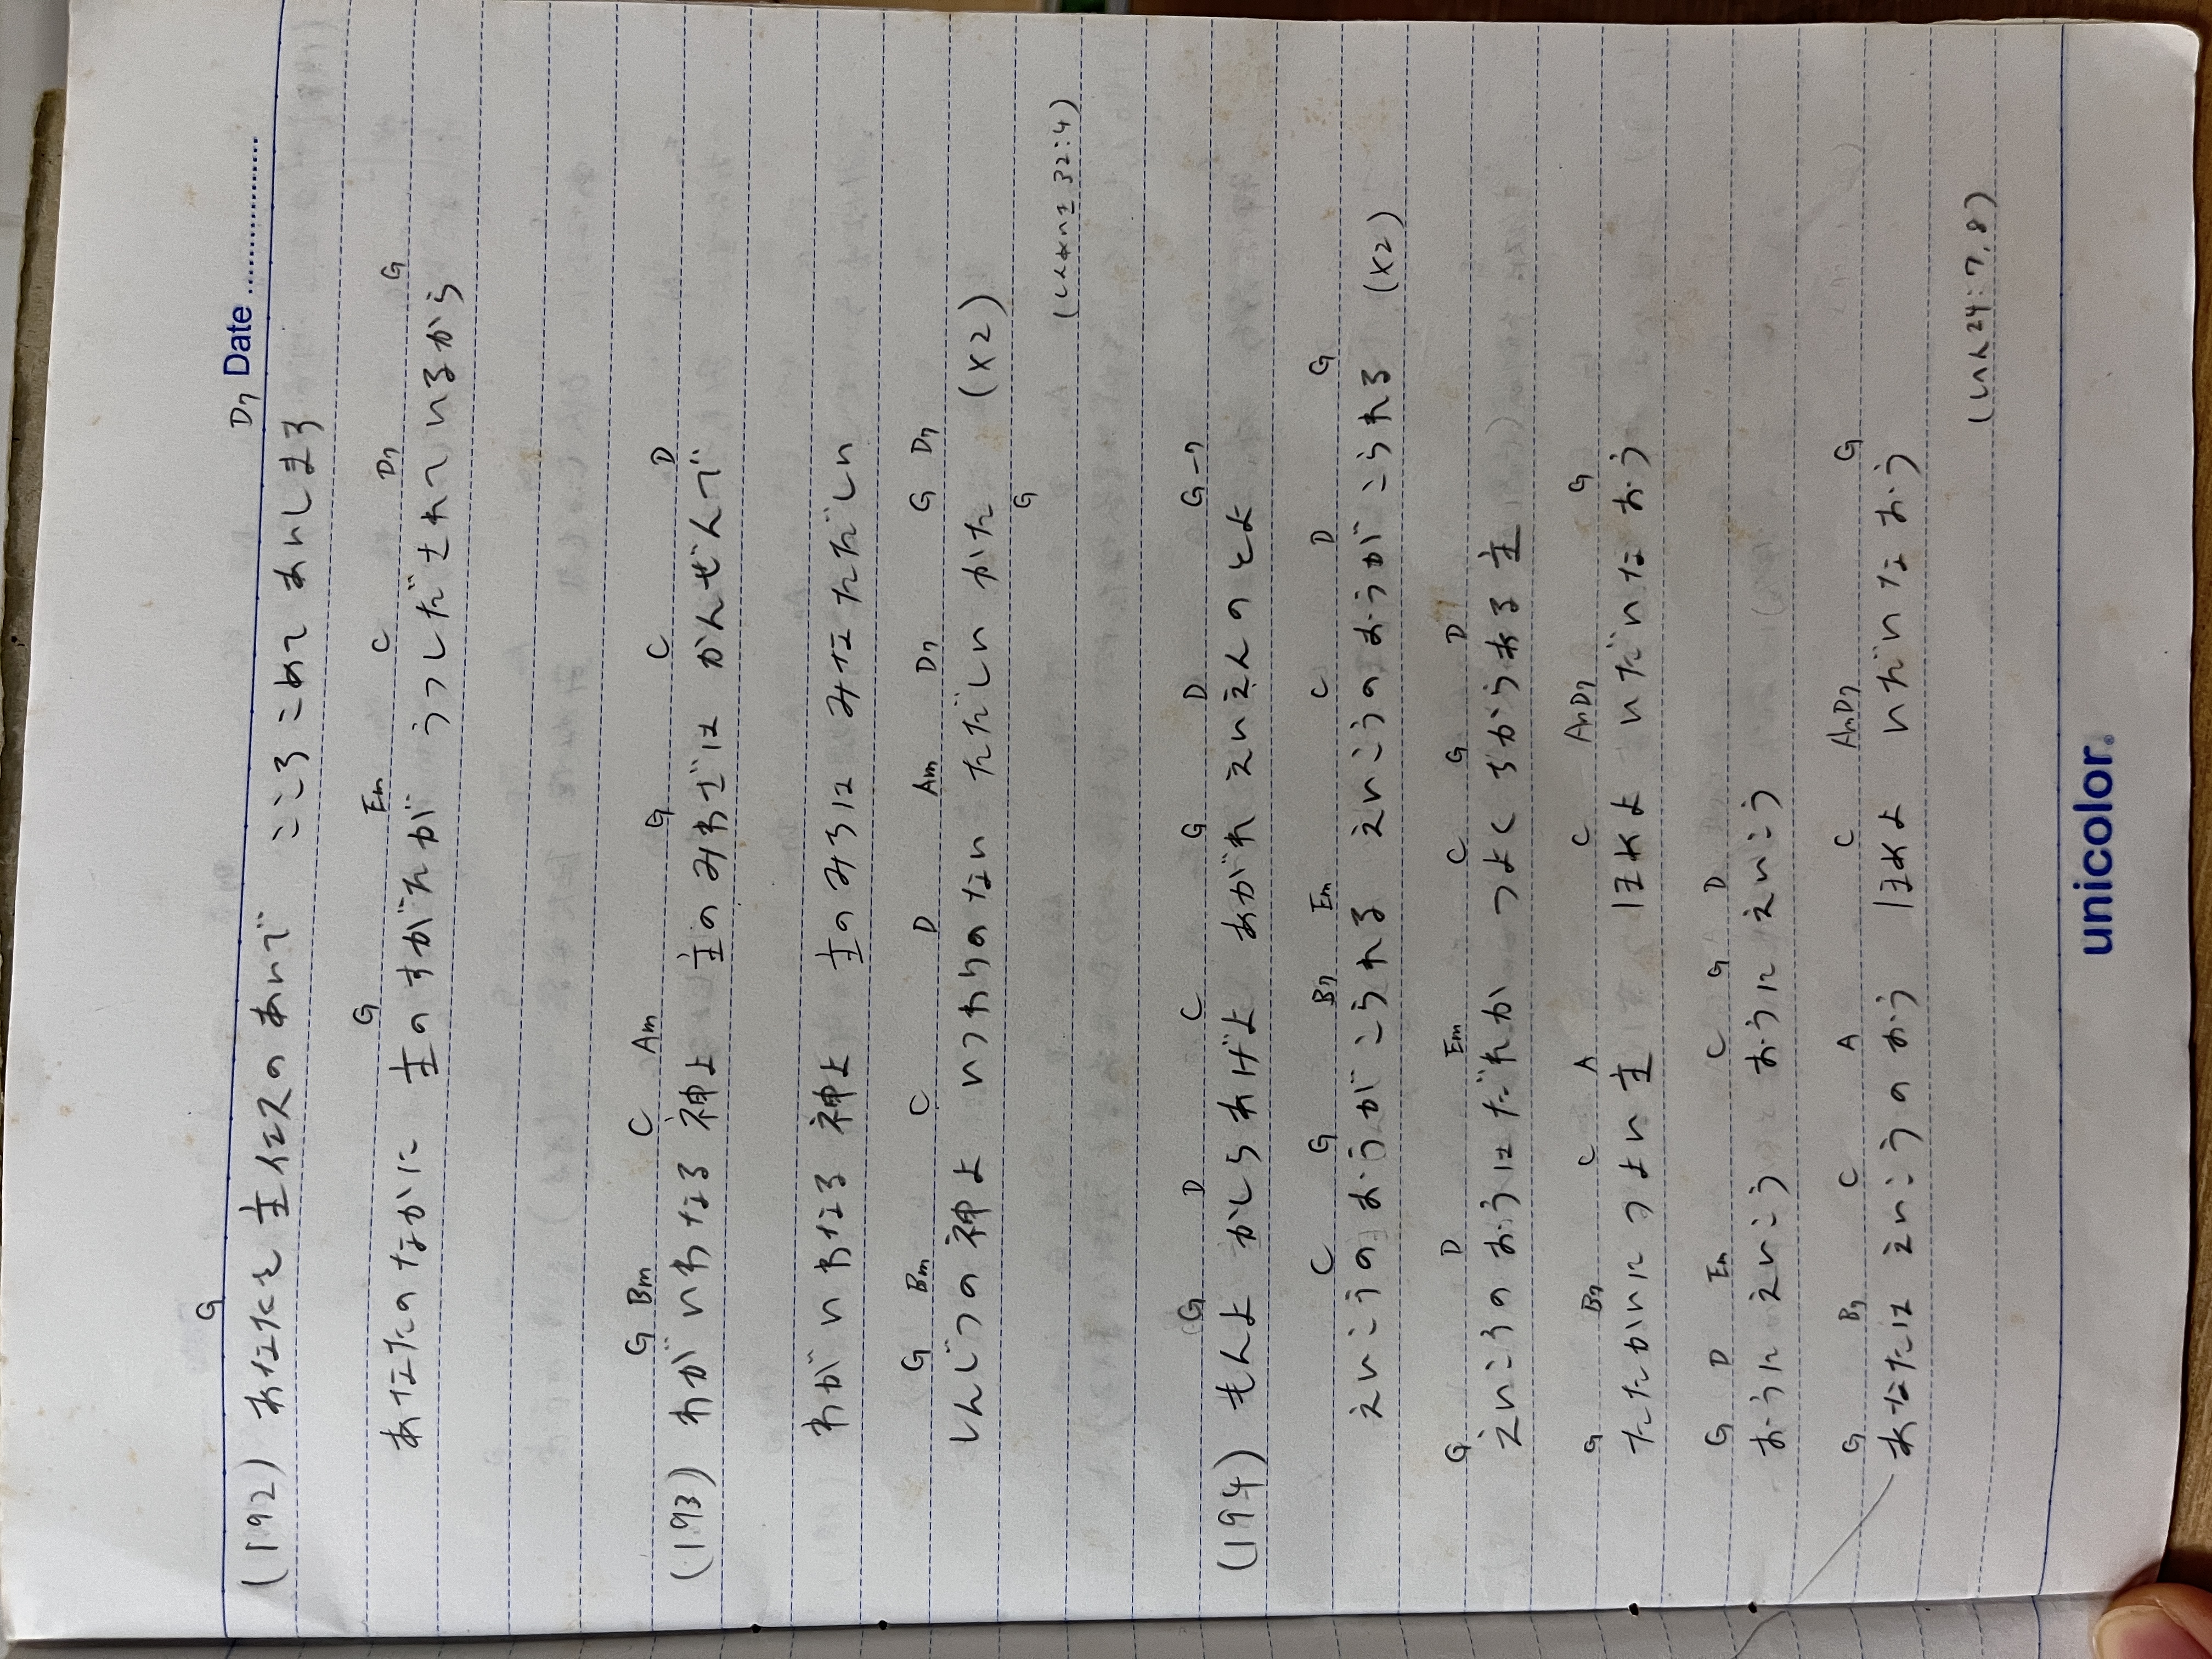 Date
G D7
(192) あなたを主イエスのあいで こころこめて あいします
G Em C D7 G
あなたのなかに 主のすがたが うつしだされているから
G Bm C Am G C D
(193) わがいわなる 神よ 主のみわざは かんぜんで
わがいわなる 神よ 主のみちは みなただしい
G Bm C D Am D7 G D7
しんじつの神よ いつわりのない ただしい かた (×2)
G
(しんめい 32:4)
G D C G D G-7
(194) もんよ かしらあげよ あがれ えいえんのとよ
C G B7 Em C D G
えいこうのおうが こられる えいこうのおうが こられる (×2)
G D Em C G D
えいこうのおうはだれか つよく ちからある 主
G B7 C A C AmD7 G
たたかいに つよい 主 ほめよ いだいな おう
G D Em C G D
おうに えいこう おうに えいこう
G B7 C A C AmD7 G
あなたは えいこうの おう ほめよ いだいな おう
24:7,8)
unicolor.